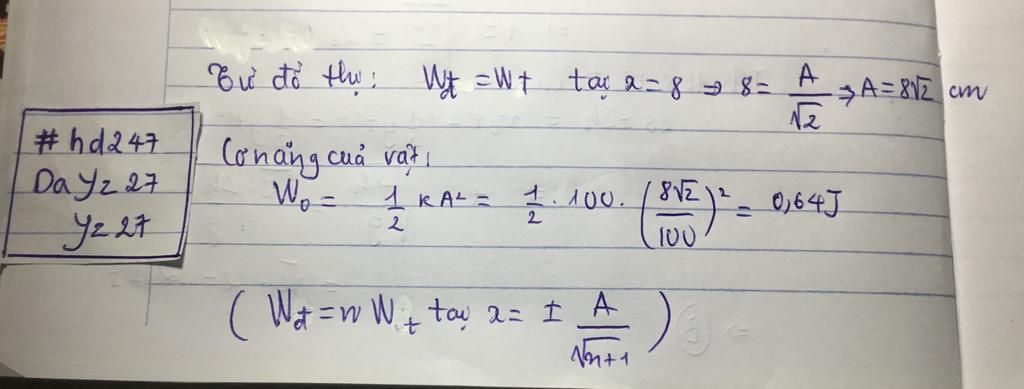 Từ đồ thị: Wđ = Wt tại x = 8 ⇒ 8 = A/√2 ⇒ A = 8√2 cm
#hd247
DaYz27
Yz27
Cơ năng của vật:
W₀ = 1/2 kA² = 1/2 . 100 . (8√2/100)² = 0,64J
(Wđ = n Wt tại x = ± A/√n+1)